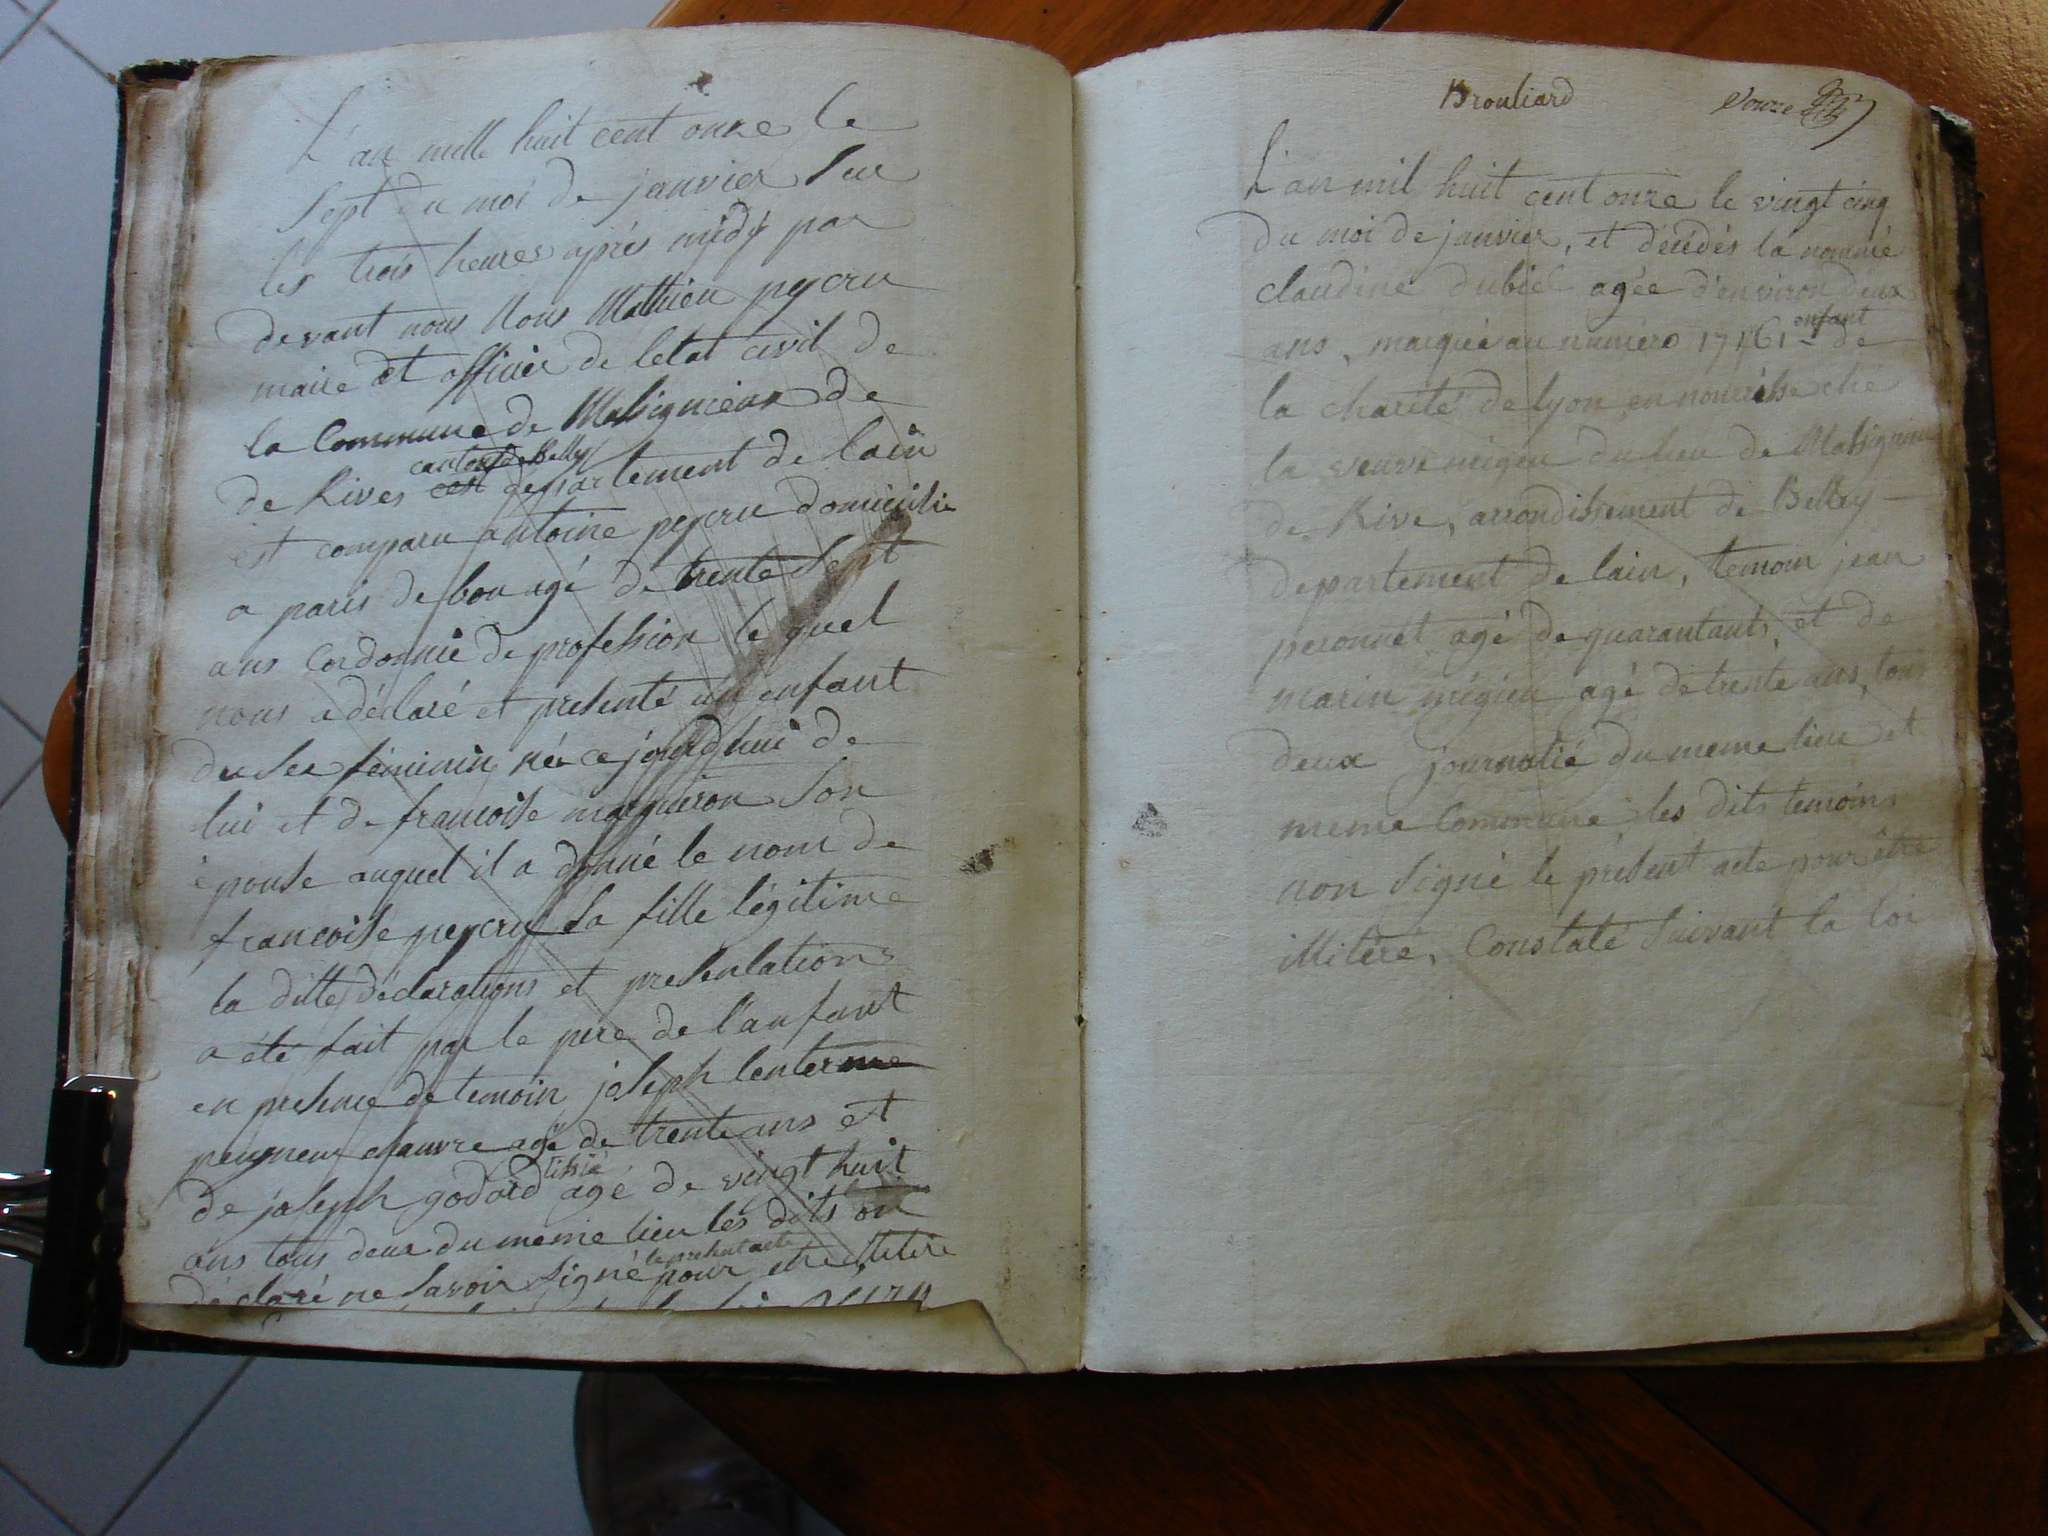 L'an mille huit cent onze le
sept du moi de janvier sur
les trois heures après midy par
devant nous Nous Mathieu peycru
maire et officier de letat civil de
la Commune de Massignieux de
de Rives canton de Belley departement de lain
est comparu antoine peycru domicilié
a paris de bon agé de trente sept
ans Cordonnié de profession le quel
nous a déclaré et présenté un enfant
du sex féminin née ce jourdhui de
lui et de francoise son
épouse auquel il a donné le nom de
francoise peycru sa fille légitime
la ditte déclarations et presentations
a été fait par le pere de l'anfant
en presence de temoin joseph lenterme
peigneur chanvre agé de trente ans et
de joseph godard tissié agé de vingt huit
ans tous deux du meme lieu les dits on
déclaré ne savoir signé le present acte pour etre illitéré
Brouliard
onze
L'an mil huit cent onze le vingt cinq
du moi de janvier, et décédés la nommé
claudine dubié agée d'environ deux
ans, marquée au numéro 17161 enfant de
la charité de lyon en nourisse ché
la veuve migieu du lieu de Massignieu
de Rive, arrondissement de Belley
departement de lain, temoin jean
peronnet agé de quarantants, et de
marin migieu agé de trente ans, tous
deux journalié du meme lieu et
meme Commune les dits temoins
non signé le présent acte pour être
illitéré, Constaté suivant la loi